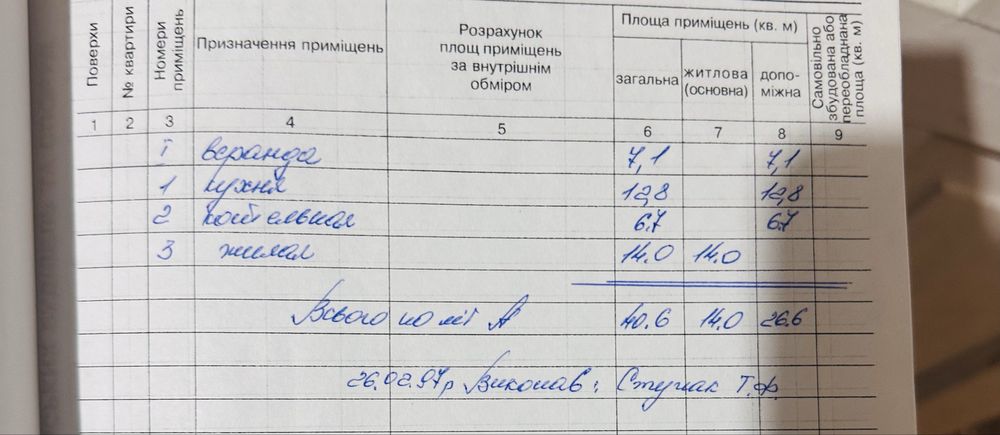 Поверхи № квартири Номери приміщень Призначення приміщень Розрахунок площ приміщень за внутрішнім обміром Площа приміщень (кв. м) загальна житлова (основна) допо-міжна Самовільно збудована або переобладнана площа (кв. м)
1 2 3 4 5 6 7 8 9
I веранда 7,1 7,1
1 кухня 12,8 12,8
2 котельная 6.7 6.7
3 жилая 14.0 14.0
Всього по літ А 40.6 14.0 26.6
26.02.97р Виконав: Т.Ф.